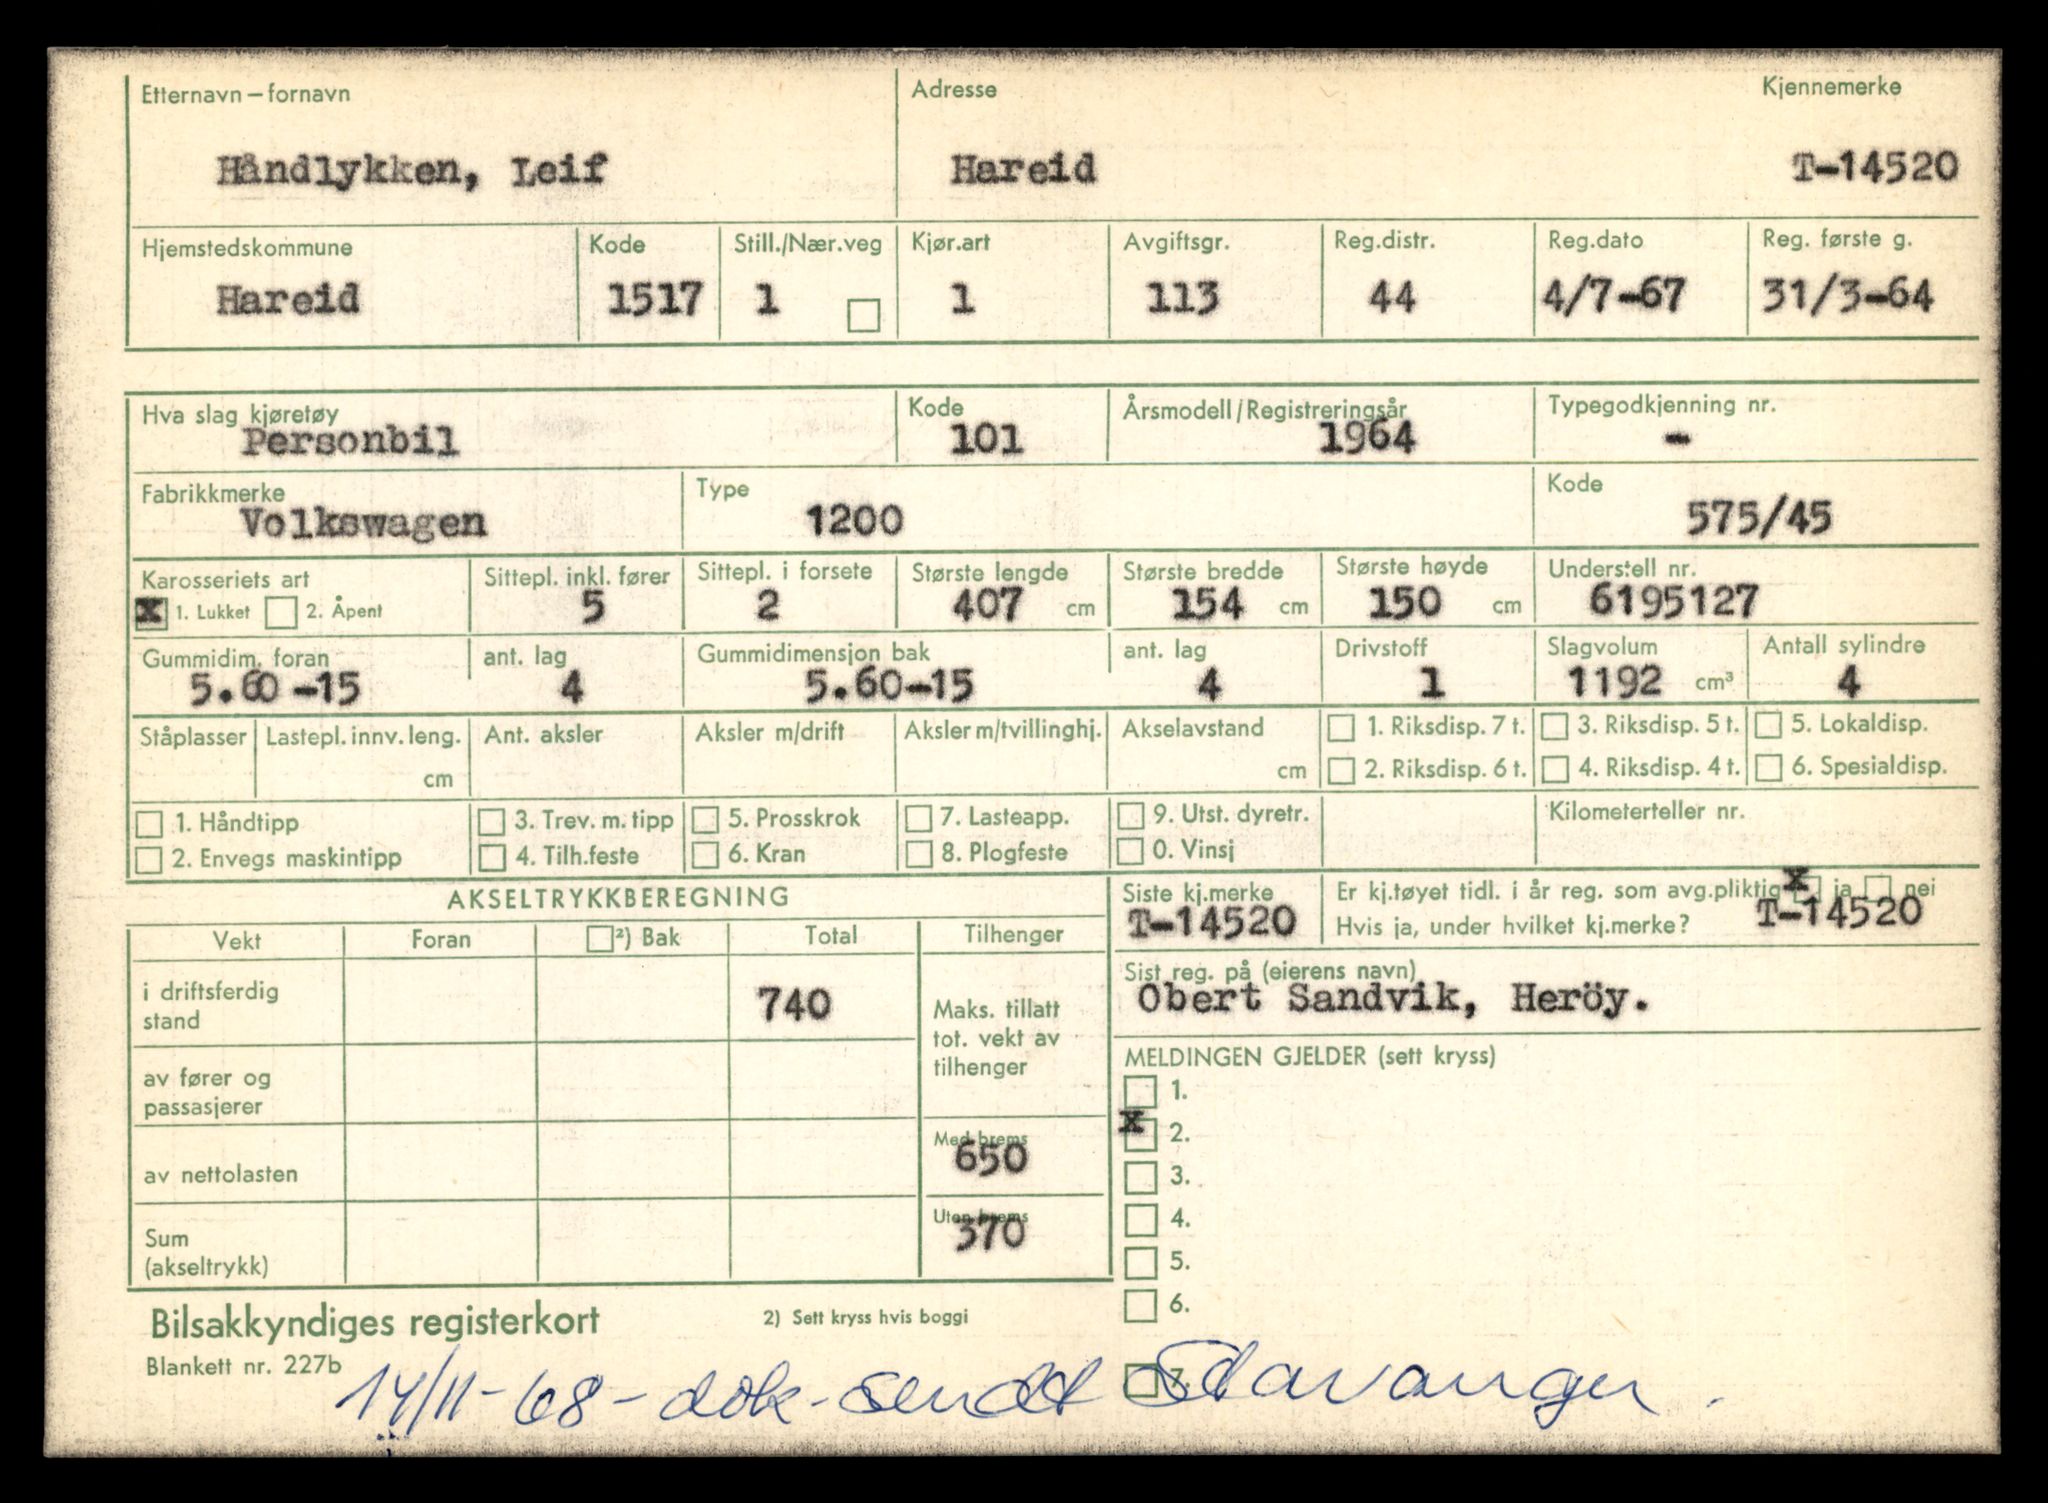 Etternavn – fornavn Adresse Kjennemerke
Håndlykken, Leif Hareid T-14520
Hjemstedskommune Kode Still./Nær.veg Kjør.art Avgiftsgr. Reg.distr. Reg.dato Reg. første g.
Hareid 1517 1 1 113 44 4/7-67 31/3-64
Hva slag kjøretøy Kode Årsmodell/Registreringsår Typegodkjenning nr.
Personbil 101 1964 -
Fabrikkmerke Type Kode
Volkswagen 1200 575/45
Karosseriets art Sittepl. inkl. fører Sittepl. i forsete Største lengde Største bredde Største høyde Understell nr.
X 1. Lukket 2. Åpent 5 2 407 cm 154 cm 150 cm 6195127
Gummidim. foran ant. lag Gummidimensjon bak ant. lag Drivstoff Slagvolum Antall sylindre
5.60-15 4 5.60-15 4 1 1192 cm³ 4
Ståplasser Lastepl. innv. leng. Ant. aksler Aksler m/drift Aksler m/tvillinghj. Akselavstand 1. Riksdisp. 7 t. 3. Riksdisp. 5 t. 5. Lokaldisp.
cm cm 2. Riksdisp. 6 t. 4. Riksdisp. 4 t. 6. Spesialdisp.
1. Håndtipp 3. Trev. m. tipp 5. Prosskrok 7. Lasteapp. 9. Utst. dyretr. Kilometerteller nr.
2. Envegs maskintipp 4. Tilh.feste 6. Kran 8. Plogfeste 0. Vinsj
AKSELTRYKKBEREGNING
Siste kj.merke Er kj.tøyet tidl. i år reg. som avg.pliktig X ja nei
T-14520 Hvis ja, under hvilket kj.merke? T-14520
Vekt Foran ²) Bak Total Tilhenger
Sist reg. på (eierens navn)
Obert Sandvik, Heröy.
i driftsferdig stand 740
Maks. tillatt tot. vekt av tilhenger
av fører og passasjerer
Med brems
av nettolasten 650
Uten brems
Sum (akseltrykk) 370
MELDINGEN GJELDER (sett kryss)
1.
X 2.
3.
4.
5.
6.
7.
Bilsakkyndiges registerkort 2) Sett kryss hvis boggi
Blankett nr. 227b
14/11-68 - dok. sendt Stavanger.